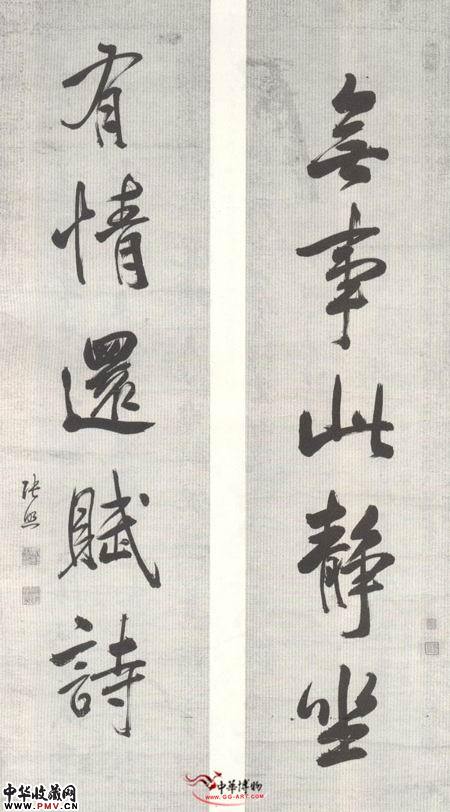 無事此靜坐
有情還賦詩
張照
中华收藏网
www.PMV.CN
中華博物
www.GG-ART.COM